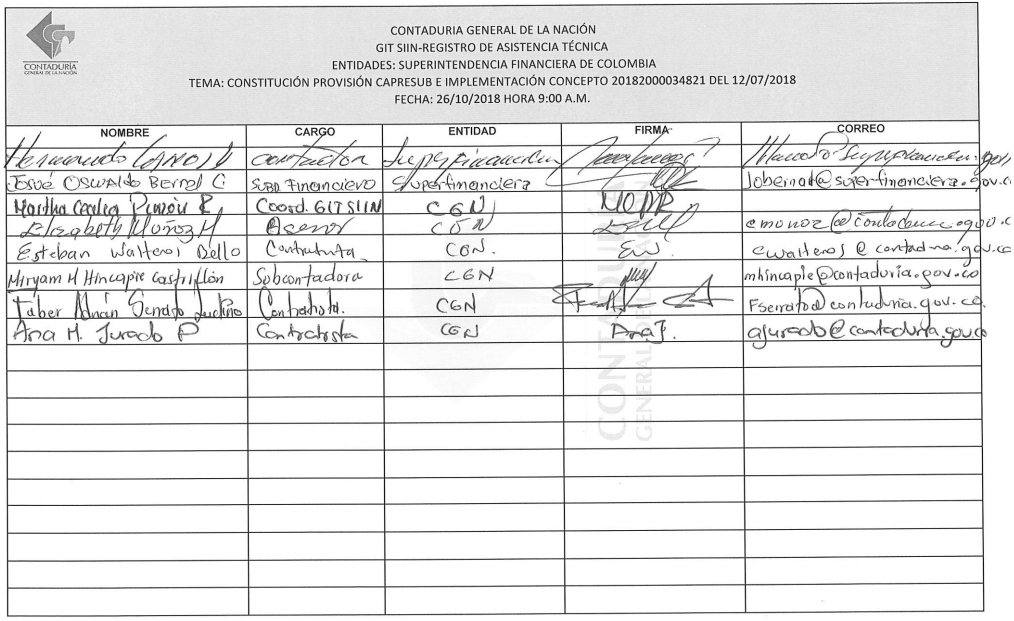 CONTADURÍA
GENERAL DE LA NACIÓN
CONTADURIA GENERAL DE LA NACIÓN
GIT SIIN-REGISTRO DE ASISTENCIA TÉCNICA
ENTIDADES: SUPERINTENDENCIA FINANCIERA DE COLOMBIA
TEMA: CONSTITUCIÓN PROVISIÓN CAPRESUB E IMPLEMENTACIÓN CONCEPTO 20182000034821 DEL 12/07/2018
FECHA: 26/10/2018 HORA 9:00 A.M.
NOMBRE CARGO ENTIDAD FIRMA CORREO
Hernando contador Superfinanciera
Josué Oswaldo Bernal C. Sub. Financiero Superfinanciera jobernal@superfinanciera.gov.co
Martha Cecilia Pinzón R Coord. GIT SIIN CGN
Elizabeth Muñoz H Asesor CGN emunoz@contaduria.gov.co
Esteban Walteros Bello Contratista. CGN. EW. ewalteros@contaduria.gov.co
Miryam M Hincapie Castrillón Subcontadora CGN mhincapie@contaduria.gov.co
Faber Adrián Serrato Contratista. CGN Fserrato@contaduria.gov.co.
Ana M. Jurado P Contratista CGN Ana J. ajurado@contaduria.gov.co
CONTADURÍA
GENERAL DE LA NACIÓN